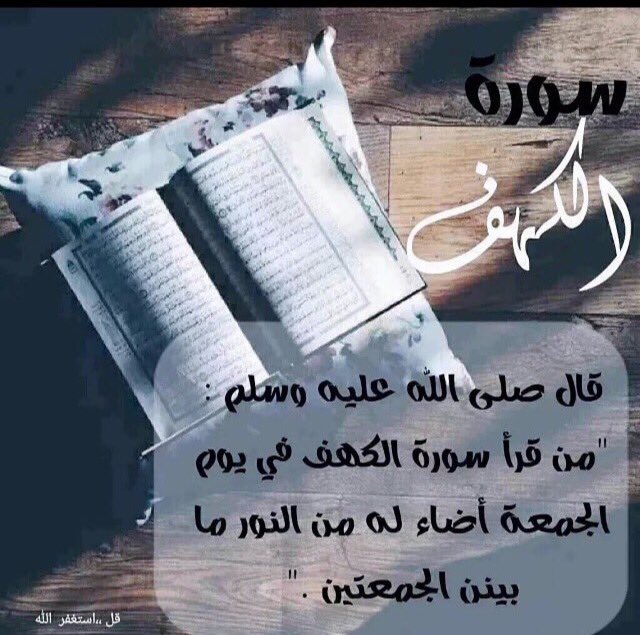 سورة
الكهف
قال صلى الله عليه وسلم :
"من قرأ سورة الكهف في يوم
الجمعة أضاء له من النور ما
بينن الجمعتين ."
قل ،،استغفر الله